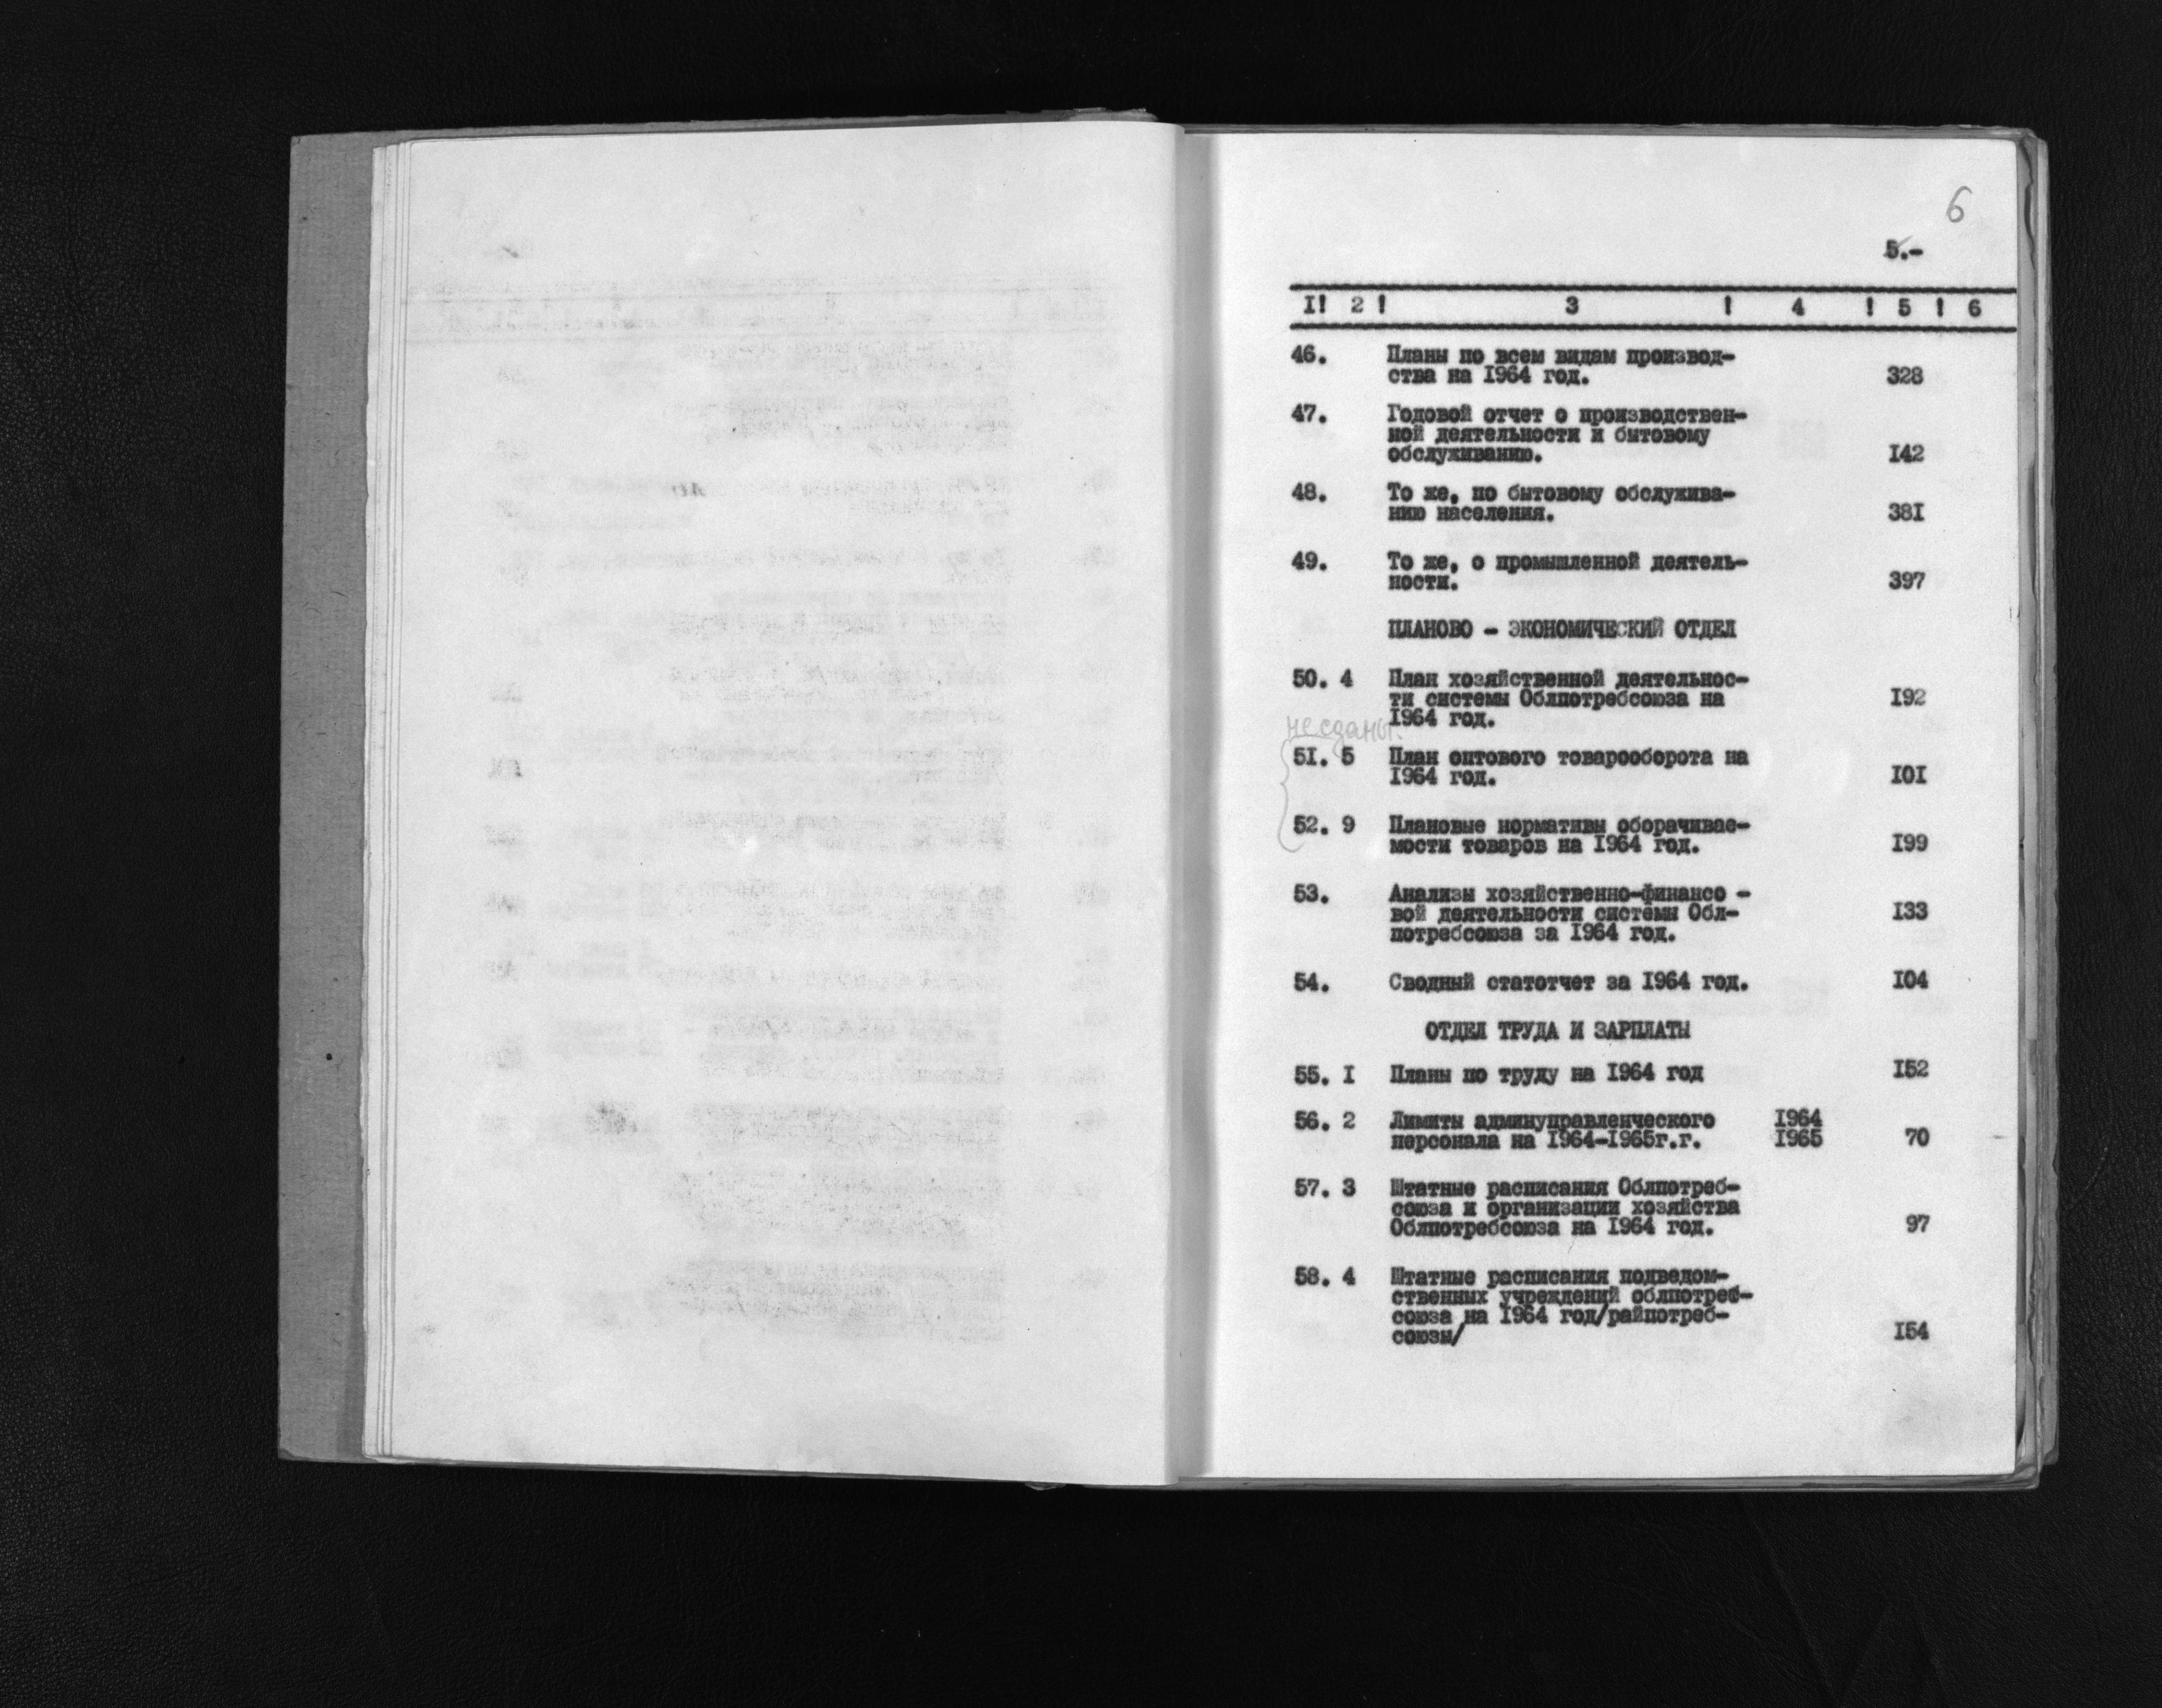 6
5.-
I! 2 ! 3 ! 4 ! 5 ! 6
46. Планы по всем видам производ-
ства на 1964 год. 328
47. Годовой отчет о производствен-
ной деятельности и бытовому
обслуживанию. 142
48. То же, по бытовому обслужива-
нию населения. 381
49. То же, о промышленной деятель-
ности. 397
ПЛАНОВО - ЭКОНОМИЧЕСКИЙ ОТДЕЛ
50. 4 План хозяйственной деятельнос-
ти системы Облпотребсоюза на 192
1964 год.
не сданы.
51. 5 План оптового товарооборота на
1964 год. 101
52. 9 Плановые нормативы оборачивае-
мости товаров на 1964 год. 199
53. Анализы хозяйственно-финансо -
вой деятельности системы Обл- 133
потребсоюза за 1964 год.
54. Сводный статотчет за 1964 год. 104
ОТДЕЛ ТРУДА И ЗАРПЛАТЫ
55. I Планы по труду на 1964 год 152
56. 2 Лимиты админуправленческого 1964
персонала на 1964-1965г.г. 1965 70
57. 3 Штатные расписания Облпотреб-
союза и организации хозяйства
Облпотребсоюза на 1964 год. 97
58. 4 Штатные расписания подведом-
ственных учреждений облпотреб-
союза на 1964 год/райпотреб-
союзы/ 154